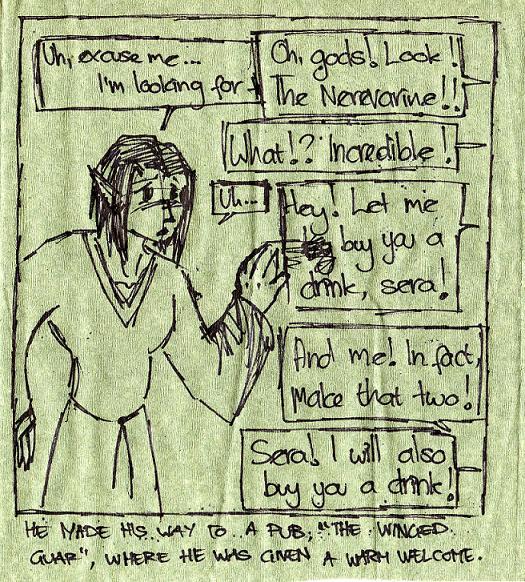 Uh, excuse me...
I'm looking for
Oh, gods! Look!!
The Nerevarine!!
What!? Incredible!
Uh...
Hey! Let me
buy you a
drink, sera!
And me! In fact,
make that two!
Sera! I will also
buy you a drink!
HE MADE HIS WAY TO A PUB, "THE WINGED
GUAR", WHERE HE WAS GIVEN A WARM WELCOME.